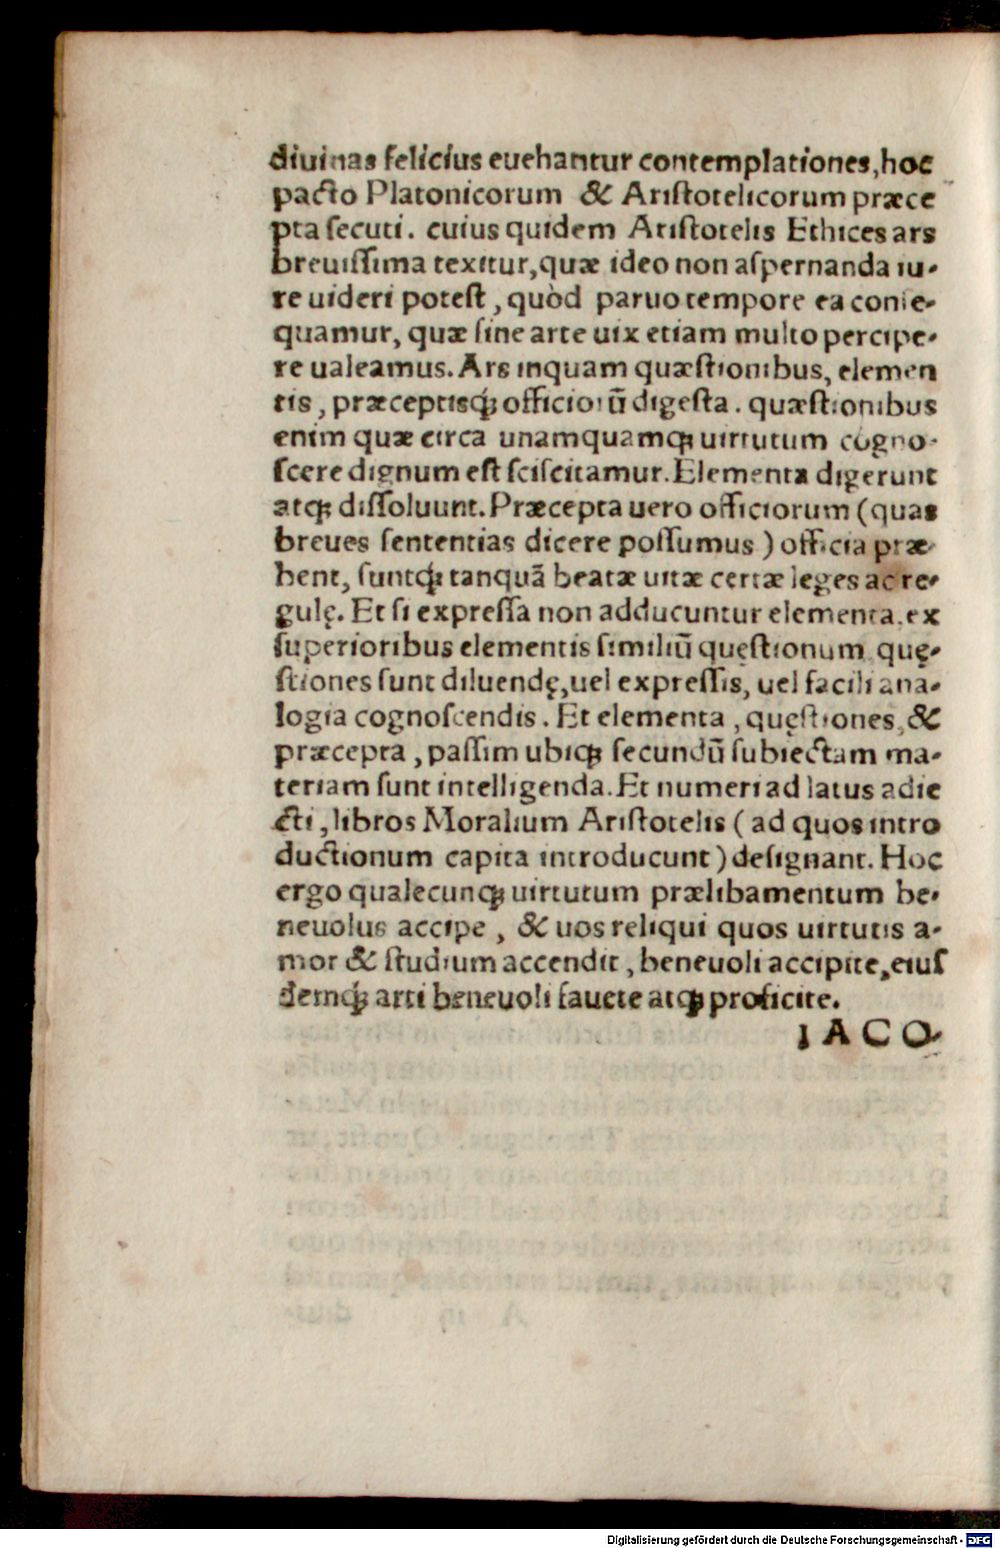 diuinas felicius euehantur contemplationes, hoc
pacto Platonicorum & Aristotelicorum præce
pta secuti. cuius quidem Aristotelis Ethices ars
breuissima texitur, quæ ideo non aspernanda iu-
re uideri potest, quòd paruo tempore ea conse-
quamur, quæ sine arte uix etiam multo percipe-
re ualeamus. Ars inquam quæstionibus, elemen
tis, præceptisq́; officiorũ digesta. quæstionibus
enim quæ circa unamquamq; uirtutum cogno-
scere dignum est sciscitamur. Elementa digerunt
atq; dissoluunt. Præcepta uero officiorum (quas
breues sententias dicere possumus) officia præ-
bent, suntq́; tanquã beatæ uitæ certæ leges ac re-
gulę. Et si expressa non adducuntur elementa, ex
superioribus elementis similiũ quęstionum quę-
stiones sunt diluendę, uel expressis, uel facili ana-
logia cognoscendis. Et elementa, quęstiones, &
præcepta, passim ubiq; secundũ subiectam ma-
teriam sunt intelligenda. Et numeri ad latus adie
cti, libros Moralium Aristotelis (ad quos intro
ductionum capita introducunt) designant. Hoc
ergo qualecunq; uirtutum prælibamentum be-
neuolus accipe, & uos reliqui quos uirtutis a-
mor & studium accendit, beneuoli accipite, eius
demq́; arti beneuoli fauete atq; proficite.
IACO-
Digitalisierung gefördert durch die Deutsche Forschungsgemeinschaft - DFG